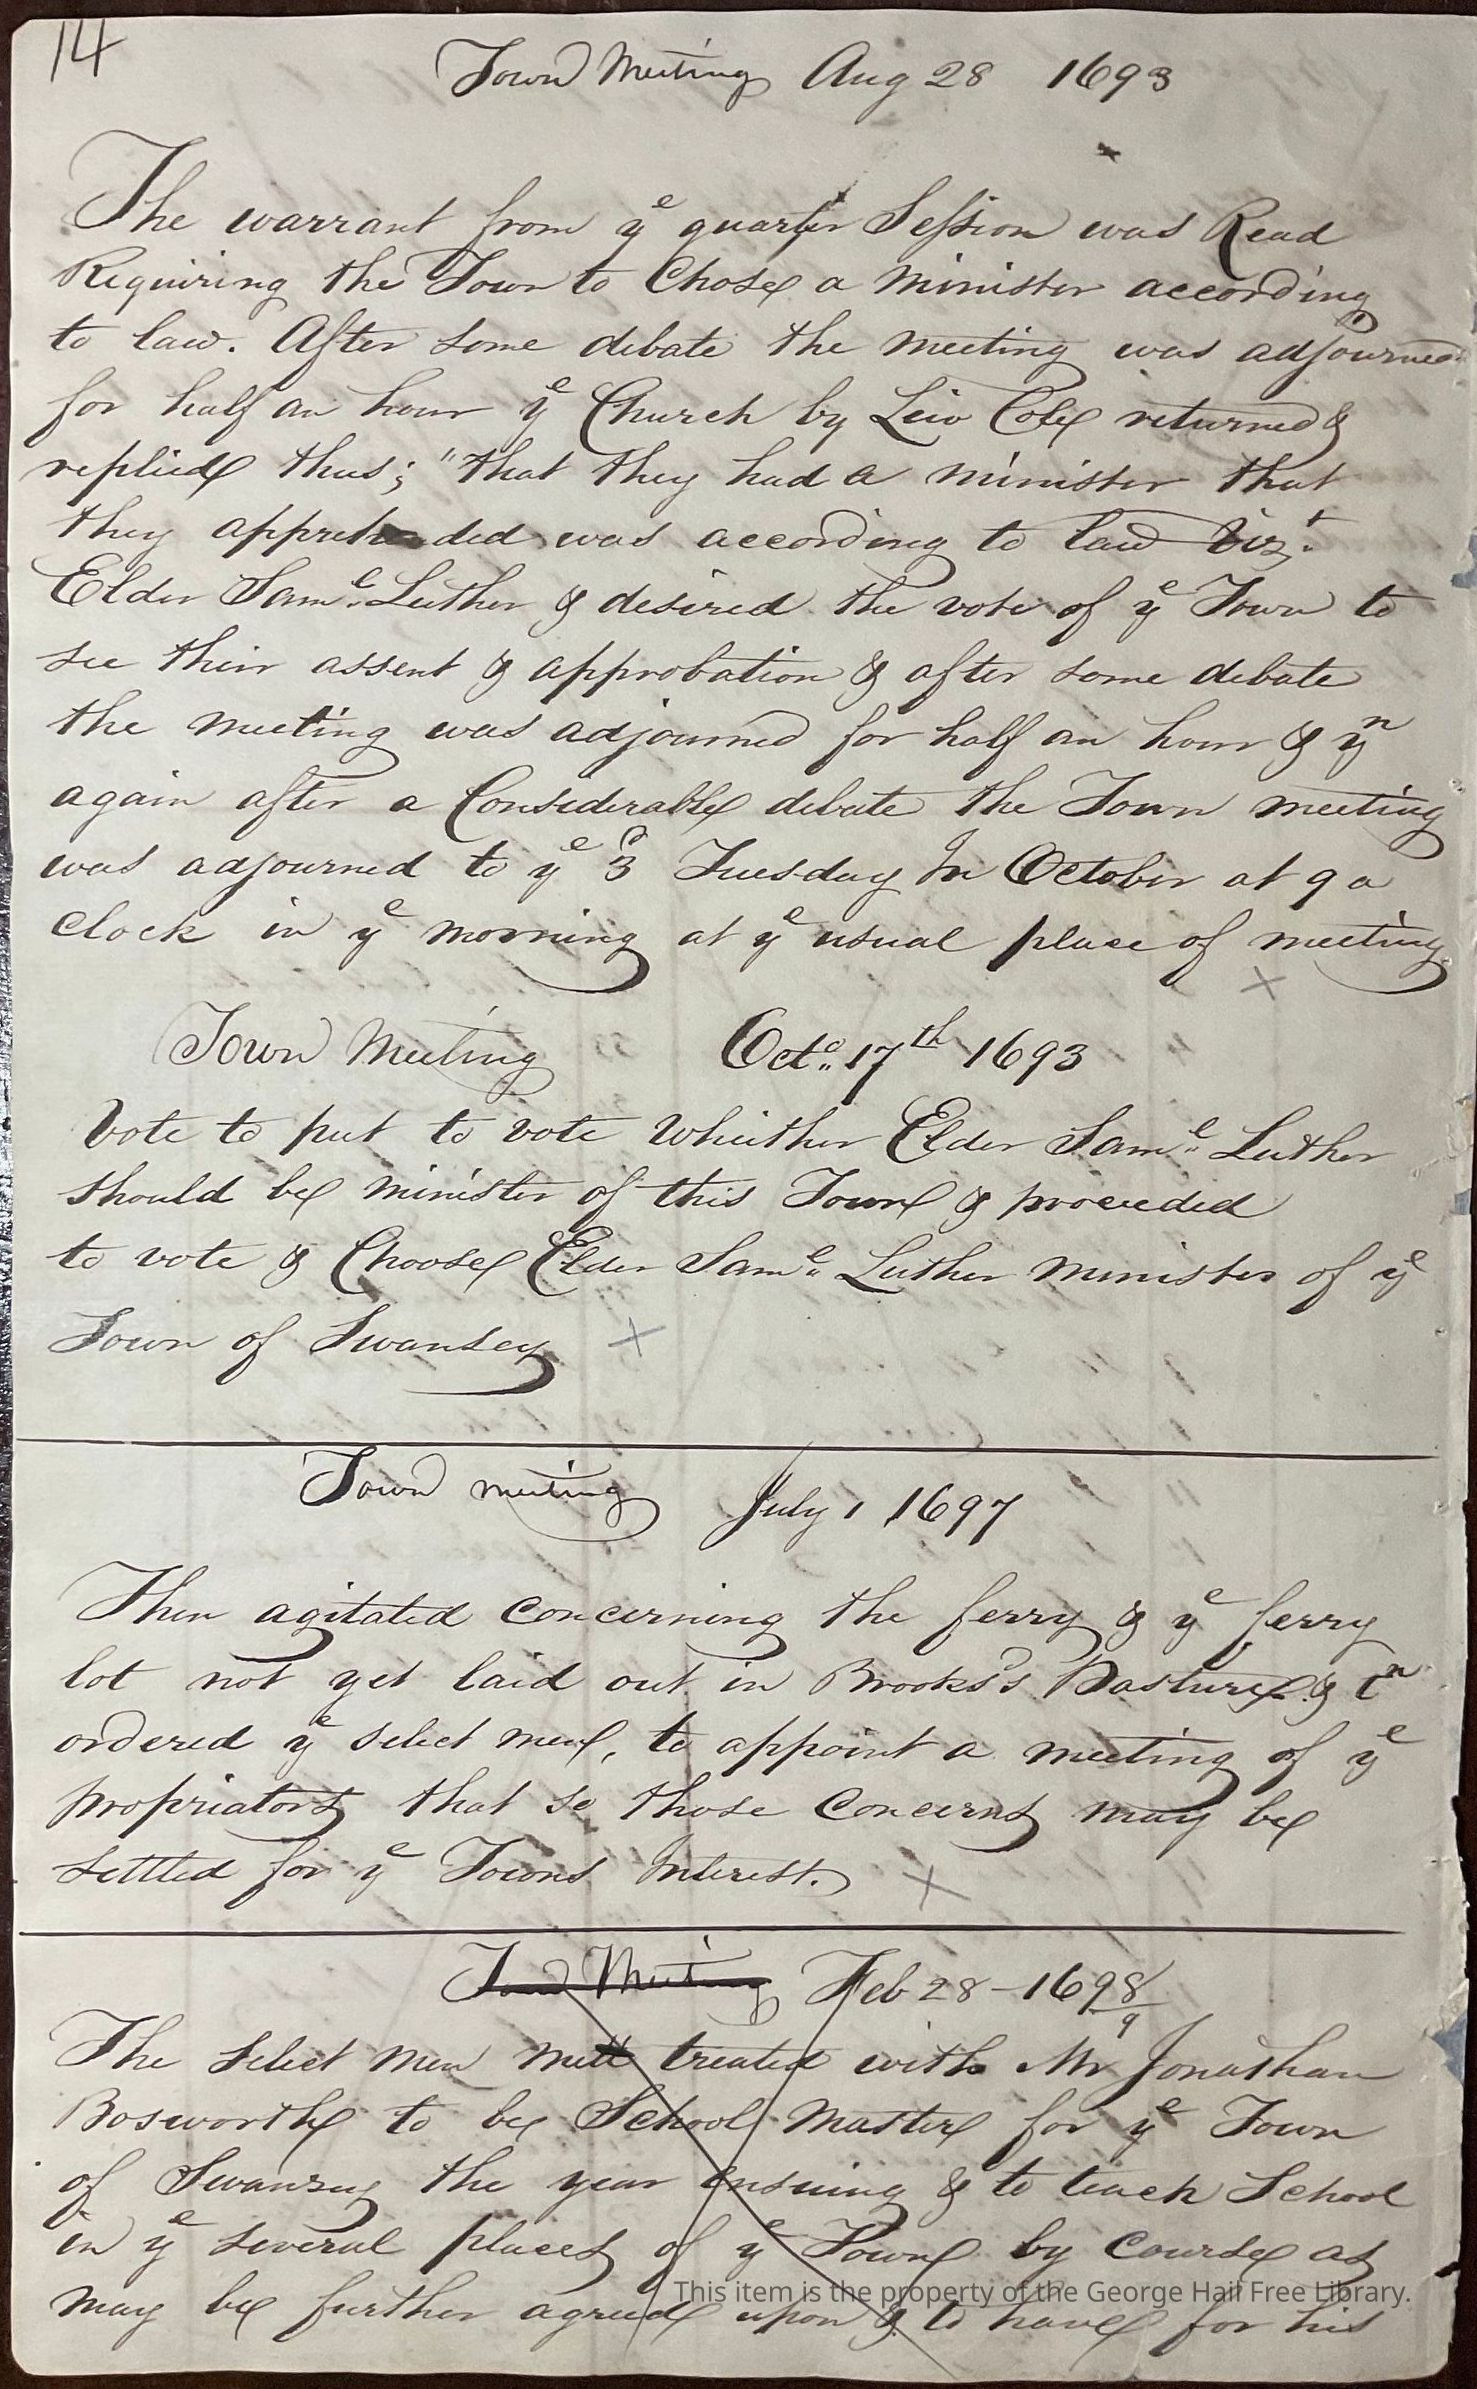 14
Town Meeting Aug 28 1693
The warrant from ye quarter Session was Read
Requiring the Town to Chose a Minister according
to law. After some debate the meeting was adjourned
for half an hour ye Church by Leiv Cole returned &
replied thus; "that they had a minister that
they apprehended was according to law Vizt.
Elder Saml. Luther & desired the vote of ye Town to
see their assent & approbation & after some debate
the meeting was adjourned for half an hour & yn
again after a Considerable debate the Town meeting
was adjourned to ye 3d Tuesday In October at 9 a
Clock in ye morning at ye usual place of meeting
Town Meeting Octo. 17th 1693
Vote to put to vote Wheither Elder Saml. Luther
should be minister of this Town & proceeded
to vote & Choose Elder Saml. Luther Minister of ye
Town of Swansey
Town meeting July 1 1697
Then agitated Concerning the ferry & ye ferry
lot not yet laid out in Brooks's Pasture &
ordered ye select men, to appoint a meeting of ye
propriators that so those Concerns may be
settled for ye Towns Interest.
Town Meeting Feb 28 - 1698/9
The select men mett treated with Mr Jonathan
Bosworth to be School Master for ye Town
of Swansey the year ensuing & to teach School
in ye several places of ye Town by Course as
may be further agreed upon & to have for his
This item is the property of the George Hail Free Library.